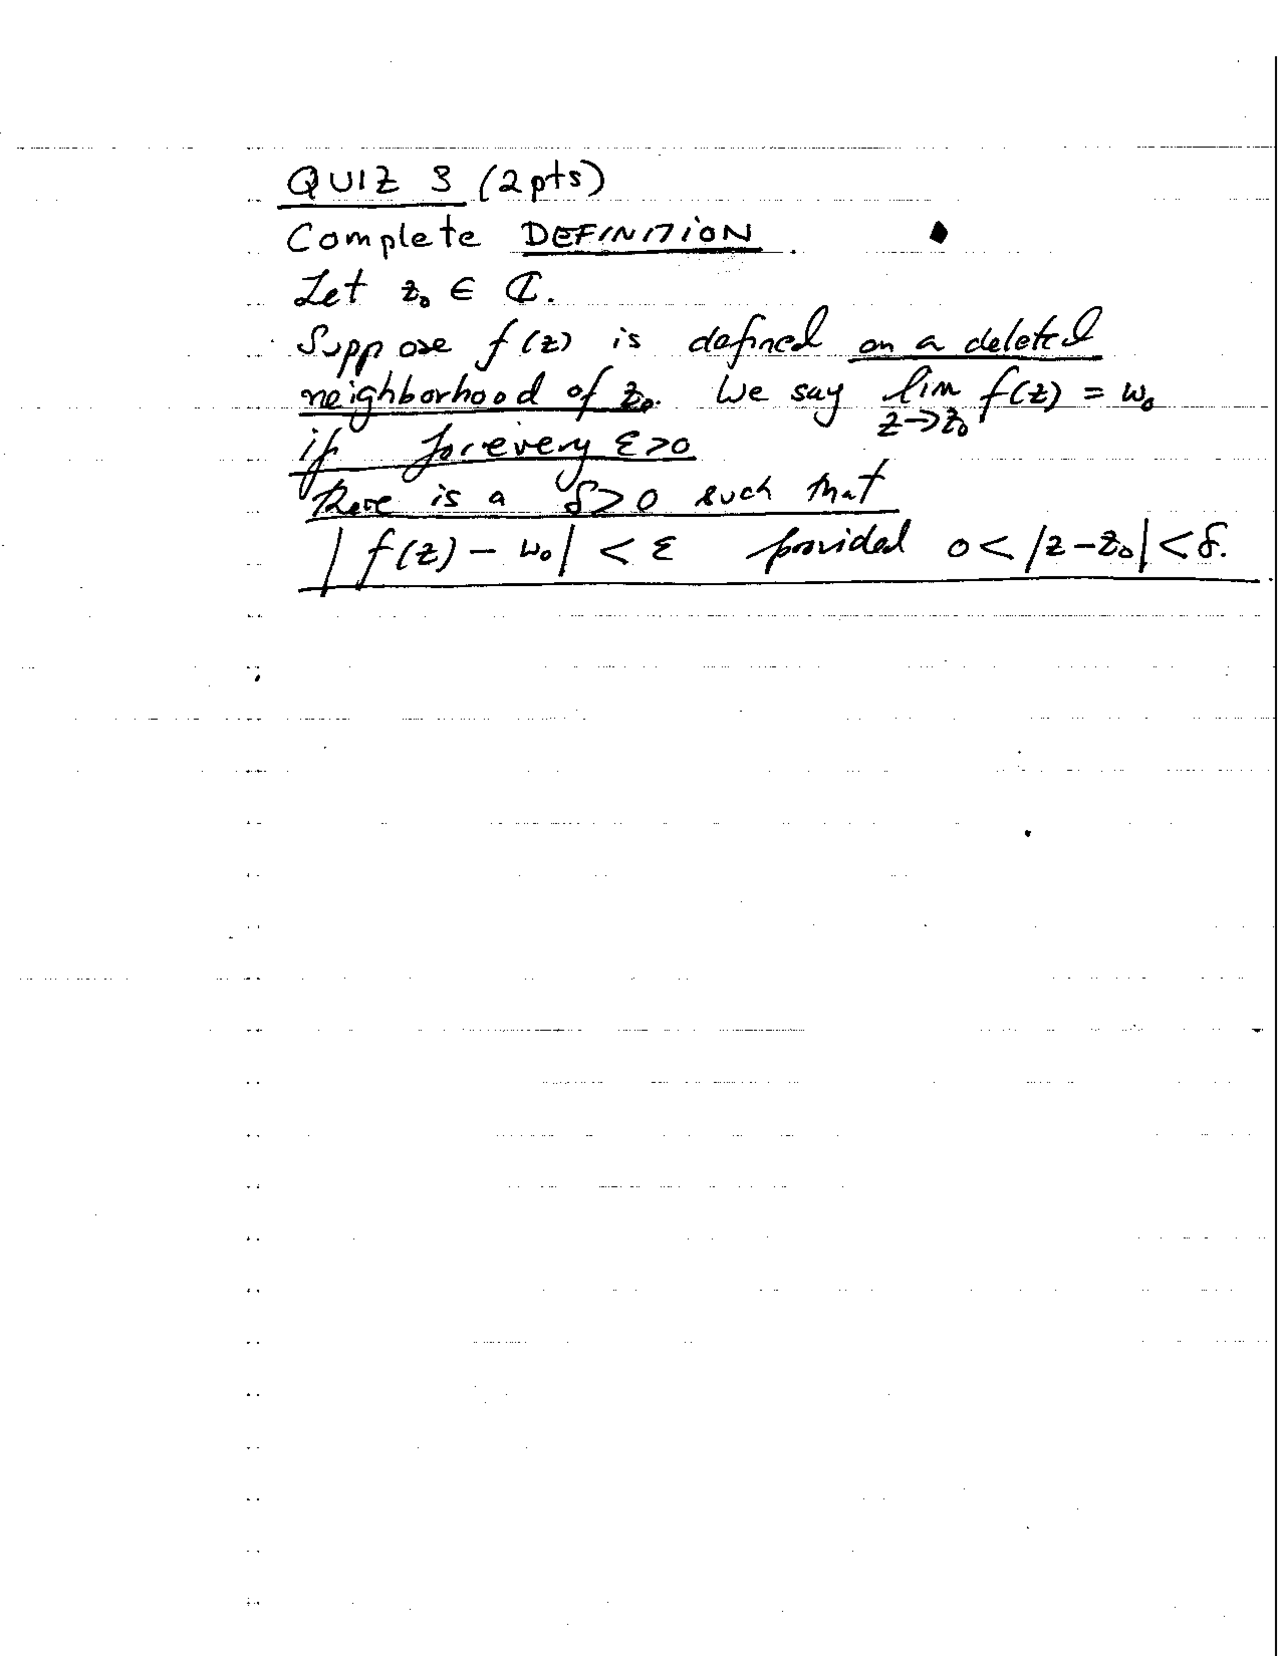 QUIZ 3 (2pts)
Complete DEFINITION.
Let z₀ ∈ ℂ.
Suppose f(z) is defined on a deleted
neighborhood of z₀. We say lim f(z) = w₀
z→z₀
if for every ε>0
there is a δ>0 such that
|f(z) - w₀| < ε provided 0< |z-z₀| < δ.